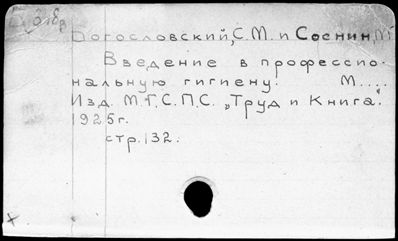 Богословский, С.М. и Соснин, М
Введение в профессио-
нальную гигиену. М....
Изд. М.Г.С.П.С. „Труд и Книга."
1925г.
стр. 132.